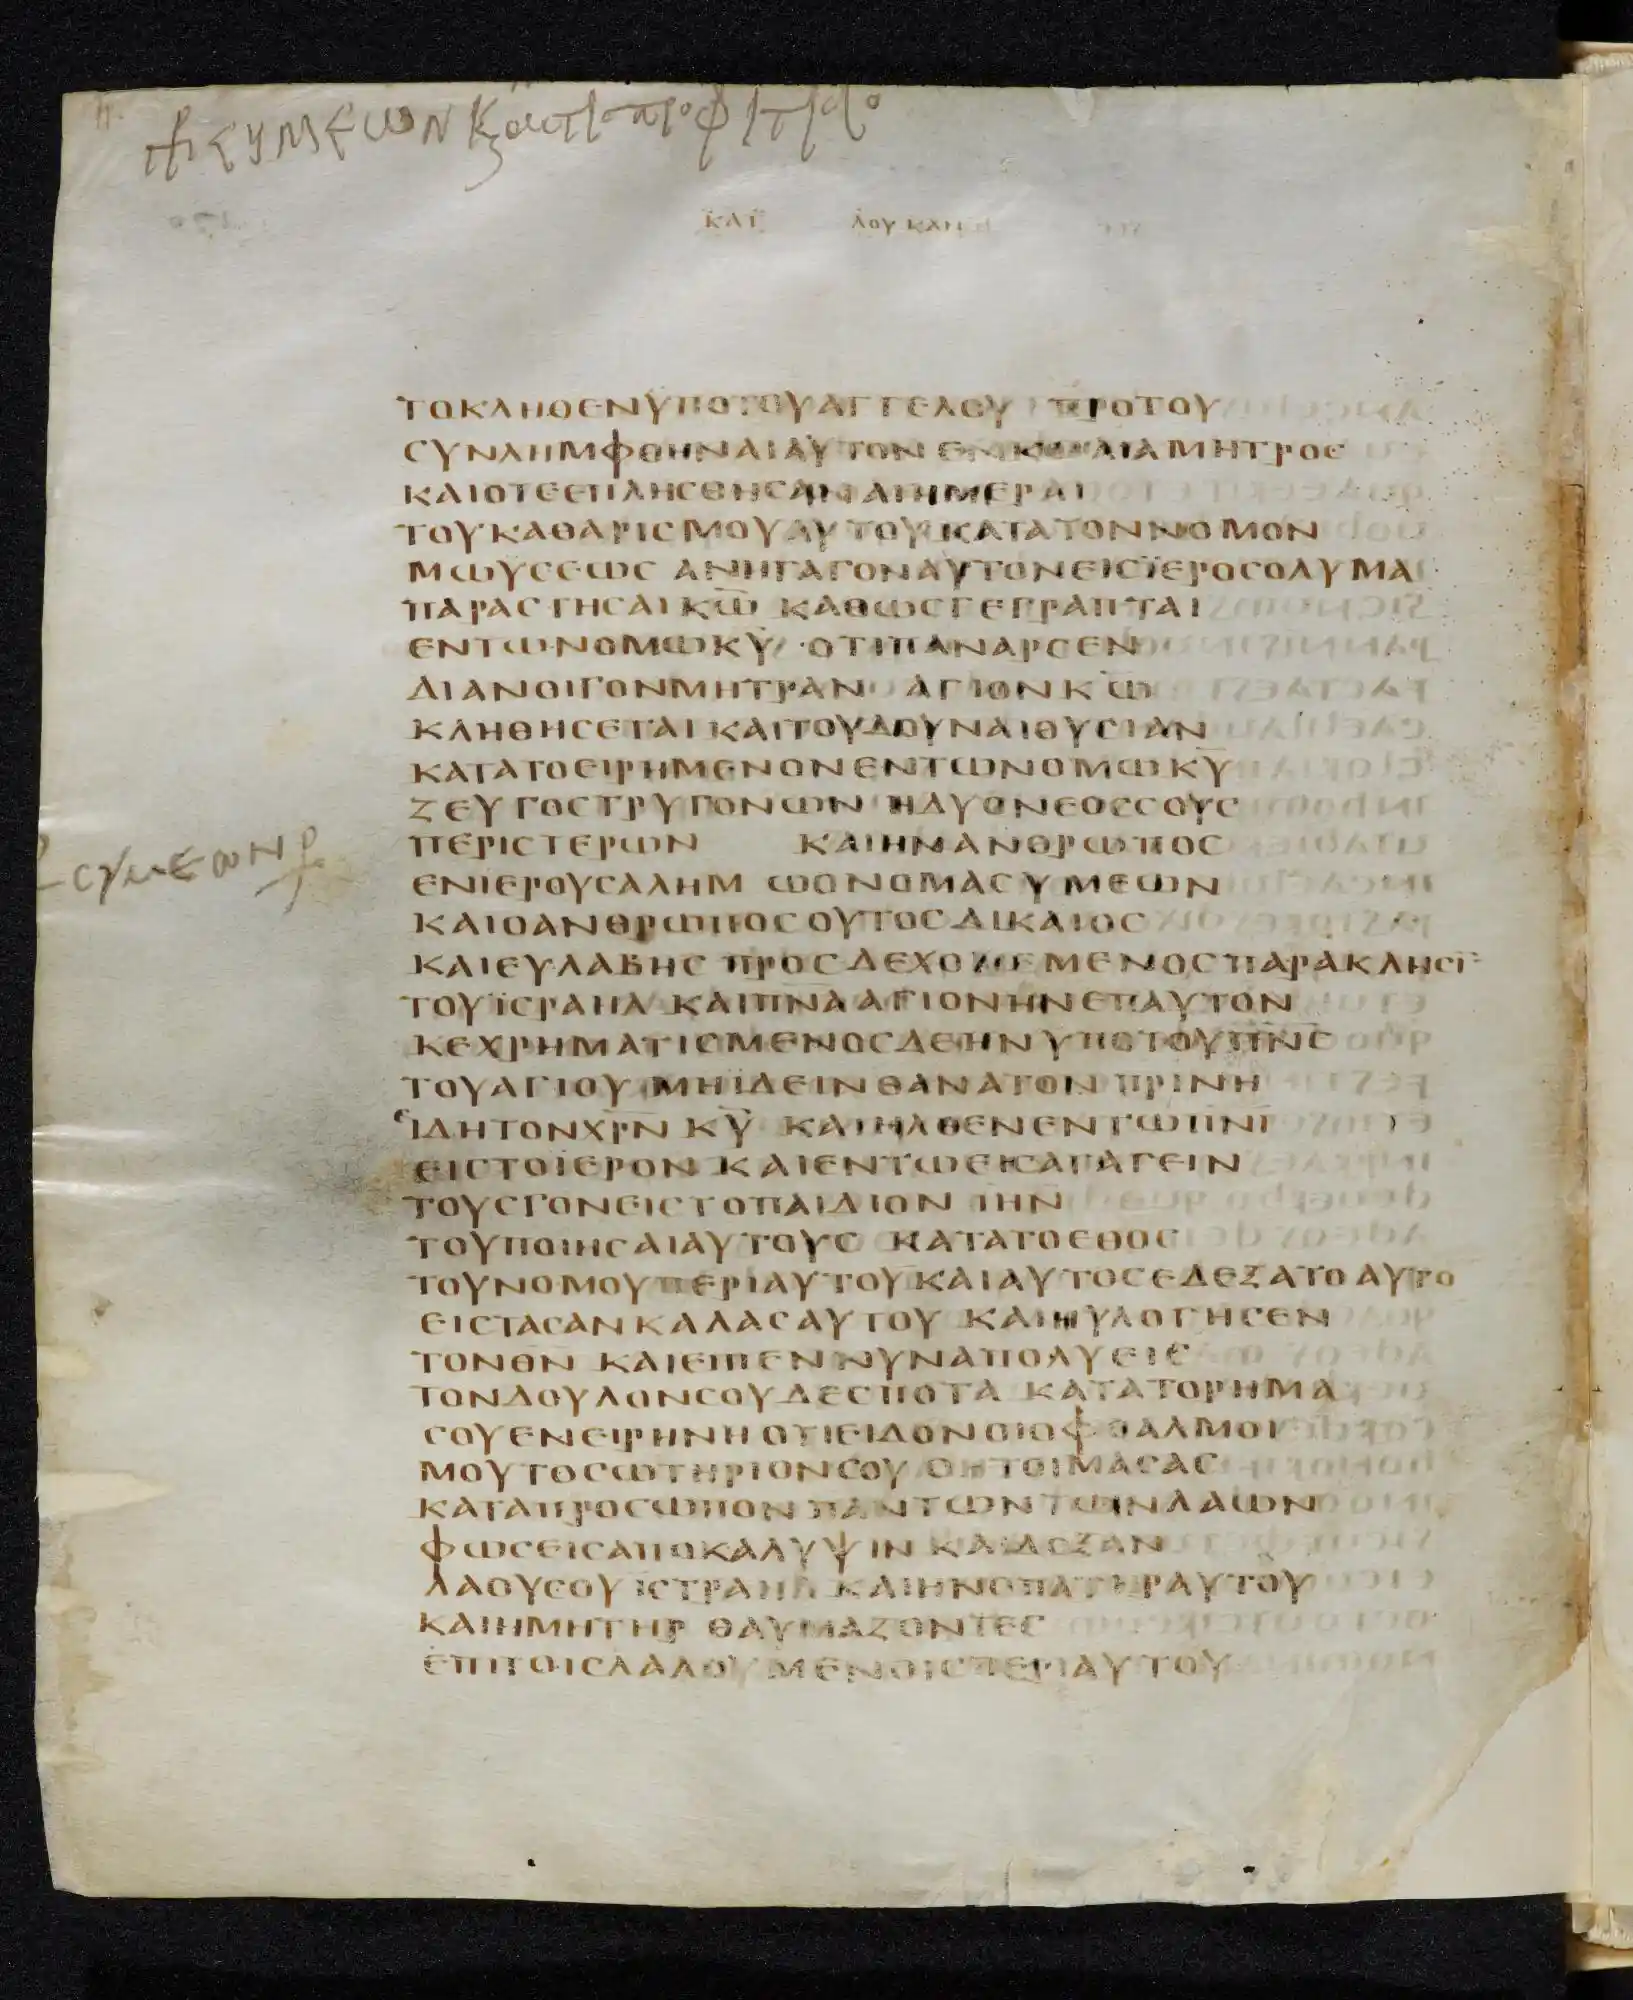 ΚΑΤ ΛΟΥΚΑΝ
ΤΟΚΛΗΘΕΝΫΠΟΤΟΥΑΓΓΕΛΟΥ ΠΡΟΤΟΥ
ΣΥΝΛΗΜΦΘΗΝΑΙΑΥΤΟΝ ΕΝΚΟΙΛΙΑΜΗΤΡΟΣ
ΚΑΙΟΤΕΕΠΛΗΣΘΗΣΑΝΑΙΗΜΕΡΑΙ
ΤΟΥΚΑΘΑΡΙΣΜΟΥΑΥΤΟΥΚΑΤΑΤΟΝΝΟΜΟΝ
ΜΩΥΣΕΩΣ ΑΝΗΓΑΓΟΝΑΥΤΟΝΕΙΣΪΕΡΟΣΟΛΥΜΑ
ΠΑΡΑΣΤΗΣΑΙΚ̅Ω̅ ΚΑΘΩΣΓΕΓΡΑΠΤΑΙ
ΕΝΤΩΝΟΜΩΚ̅Υ̅ ·ΟΤΙΠΑΝΑΡΣΕΝ
ΔΙΑΝΟΙΓΟΝΜΗΤΡΑΝ ΑΓΙΟΝΚ̅Ω̅
ΚΛΗΘΗΣΕΤΑΙ ΚΑΙΤΟΥΔΟΥΝΑΙΘΥΣΙΑΝ
ΚΑΤΑΤΟΕΙΡΗΜΕΝΟΝΕΝΤΩΝΟΜΩΚ̅Υ̅
ΖΕΥΓΟΣΤΡΥΓΟΝΩΝ ΗΔΥΟΝΕΟΣΣΟΥΣ
ΠΕΡΙΣΤΕΡΩΝ ΚΑΙΗΝΑΝΘΡΩΠΟΣ
ΣΥΜΕΩΝ
ΕΝΙΕΡΟΥΣΑΛΗΜ ΩΟΝΟΜΑΣΥΜΕΩΝ
ΚΑΙΟΑΝΘΡΩΠΟΣΟΥΤΟΣΔΙΚΑΙΟΣ
ΚΑΙΕΥΛΑΒΗΣ ΠΡΟΣΔΕΧΟΜΕΜΕΝΟΣΠΑΡΑΚΛΗΣΙ̅
ΤΟΥΪΣΡΑΗΛ ΚΑΙΠ̅Ν̅Α̅ΑΓΙΟΝΗΝΕΠΑΥΤΟΝ
ΚΕΧΡΗΜΑΤΙΣΜΕΝΟΣΔΕΗΝΥΠΟΤΟΥΠ̅Ν̅Σ̅
ΤΟΥΑΓΙΟΥ ΜΗΪΔΕΙΝΘΑΝΑΤΟΝ ΠΡΙΝΗ
ΕΙΔΗΤΟΝΧ̅Ρ̅Ν̅ Κ̅Υ̅ ΚΑΙΗΛΘΕΝΕΝΤΩΠ̅Ν̅Ι̅
ΕΙΣΤΟΪΕΡΟΝ ΚΑΙΕΝΤΩΕΙΣΑΓΑΓΕΙΝ
ΤΟΥΣΓΟΝΕΙΣΤΟΠΑΙΔΙΟΝ ΙΗΝ
ΤΟΥΠΟΙΗΣΑΙΑΥΤΟΥΣ ΚΑΤΑΤΟΕΘΟΣ
ΤΟΥΝΟΜΟΥΠΕΡΙΑΥΤΟΥΚΑΙΑΥΤΟΣΕΔΕΞΑΤΟΑΥΤΟ
ΕΙΣΤΑΣΑΝΚΑΛΑΣΑΥΤΟΥ ΚΑΙΗΥΛΟΓΗΣΕΝ
ΤΟΝΘ̅Ν̅ ΚΑΙΕΙΠΕΝ ΝΥΝΑΠΟΛΥΕΙΣ
ΤΟΝΔΟΥΛΟΝΣΟΥΔΕΣΠΟΤΑ ΚΑΤΑΤΟΡΗΜΑ
ΣΟΥΕΝΕΙΡΗΝΗΟΤΙΕΙΔΟΝΟΙΟΦΘΑΛΜΟΙ
ΜΟΥΤΟΣΩΤΗΡΙΟΝΣΟΥ ΟΗΤΟΙΜΑΣΑΣ
ΚΑΤΑΠΡΟΣΩΠΟΝ ΠΑΝΤΩΝΤΩΝΛΑΩΝ
ΦΩΣΕΙΣΑΠΟΚΑΛΥΨΙΝ ΚΑΙΔΟΞΑΝ
ΛΑΟΥΣΟΥ ΙΣΤΡΑΗΛ ΚΑΙΗΝΟΠΑΤΗΡΑΥΤΟΥ
ΚΑΙΗΜΗΤΗΡ ΘΑΥΜΑΖΟΝΤΕΣ
ΕΠΙΤΟΙΣΛΑΛΟΥΜΕΝΟΙΣΠΕΡΙΑΥΤΟΥ